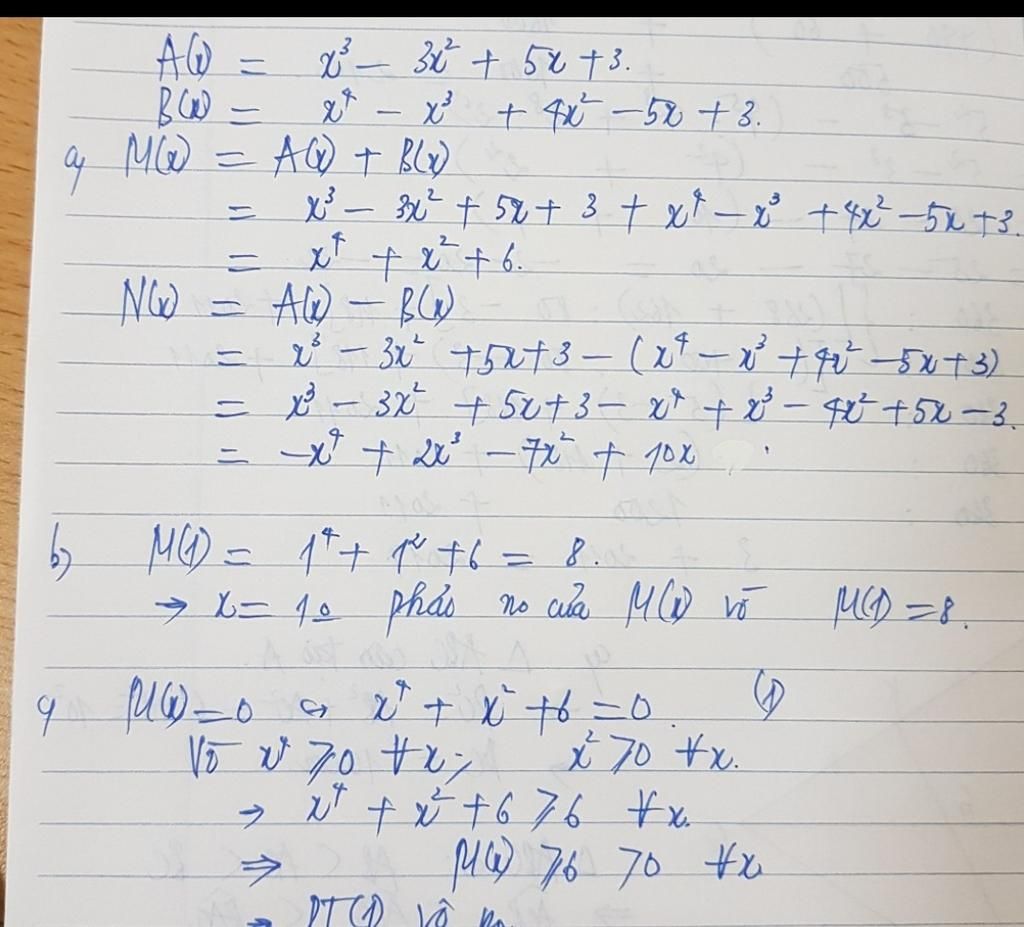 A(x) = x³ − 3x² + 5x + 3.
B(x) = x⁴ − x³ + 4x² − 5x + 3.
a) M(x) = A(x) + B(x)
= x³ − 3x² + 5x + 3 + x⁴ − x³ + 4x² − 5x + 3.
= x⁴ + x² + 6.
N(x) = A(x) − B(x)
= x³ − 3x² + 5x + 3 − (x⁴ − x³ + 4x² − 5x + 3)
= x³ − 3x² + 5x + 3 − x⁴ + x³ − 4x² + 5x − 3.
= −x⁴ + 2x³ − 7x² + 10x
b) M(1) = 1⁴ + 1² + 6 = 8.
→ x = 1 no của M(x) vì M(1) = 8.
c) M(x) = 0 ⇔ x⁴ + x² + 6 = 0. (1)
Vì x⁴ ⩾ 0 ∀x; x² ⩾ 0 ∀x.
→ x⁴ + x² + 6 ⩾ 6 ∀x.
⇒ M(x) ⩾ 6 > 0 ∀x
→ PT(1) vô no